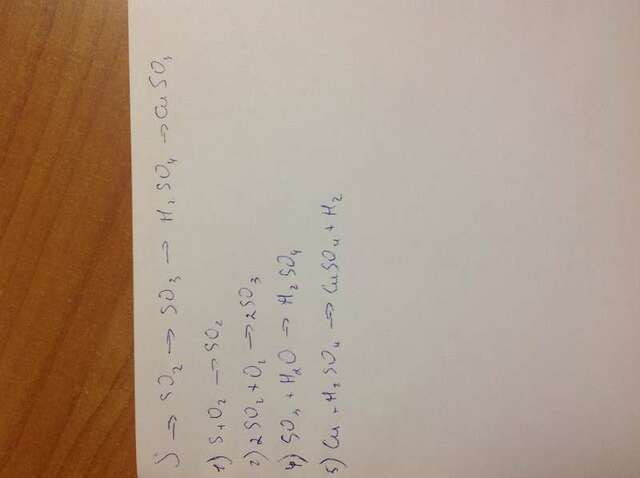 S → SO₂ → SO₃ → H₂SO₄ → CuSO₃
1) S + O₂ → SO₂
2) 2SO₂ + O₂ → 2SO₃
4) SO₃ + H₂O → H₂SO₄
5) Cu + H₂SO₄ → CuSO₄ + H₂